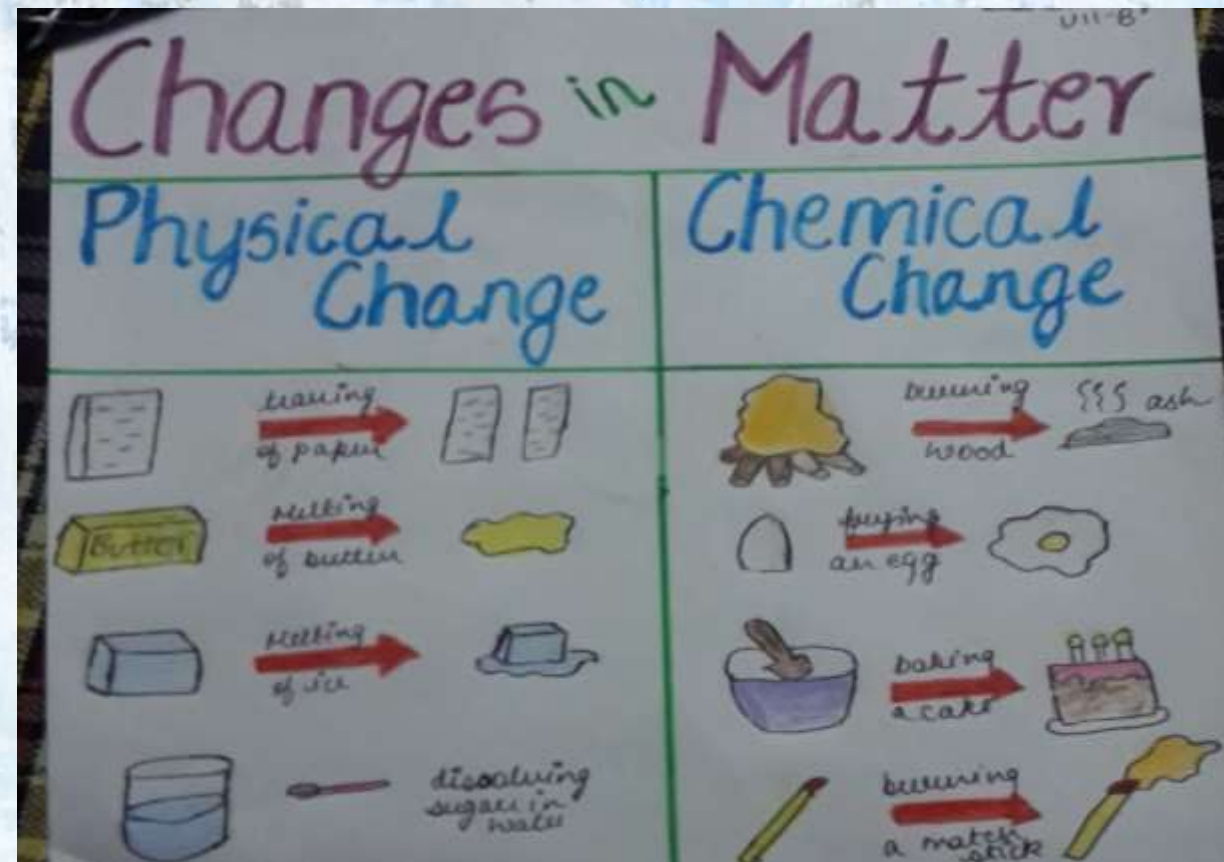 VII-B
Changes in Matter
Physical
Change
Chemical
Change
tearing
of paper
Butter
Melting
of butter
Melting
of ice
dissolving
sugar in
water
burning
wood
ash
frying
an egg
baking
a cake
burning
a match
stick